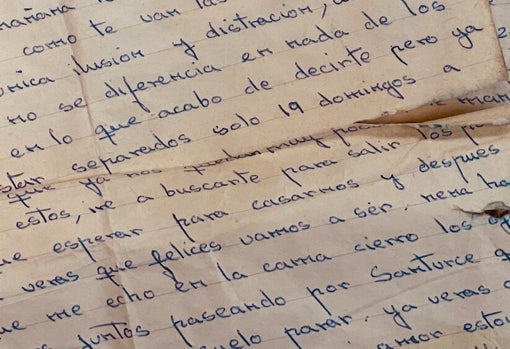 mañana
como te van las
unica ilusion y distracion,
no se diferencia en nada de los
en lo que acabo de decirte pero ya
estar separados solo 19 domingos a
que ya nos quedan muy poco
estos, ire a buscarte para salir los
que esperar para casarnos y despues
veras que felices vamos a ser. nena
que me echo en la cama cierro los
juntos paseando por Santurce
suelo parar. ya veras
amor